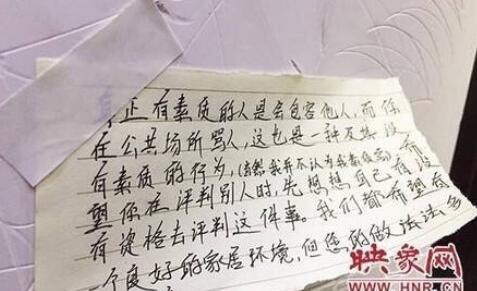 真正有素质的人是会包容他人,而你
在公共场所骂人,这也是一种及其没
有素质的行为,(当然我并不认为我有做
望你在评判别人时,先想想自己有没
有资格去评判这件事。我们都希望有
一个良好的家居环境,但您的做法
映象网
WWW.HNR.CN